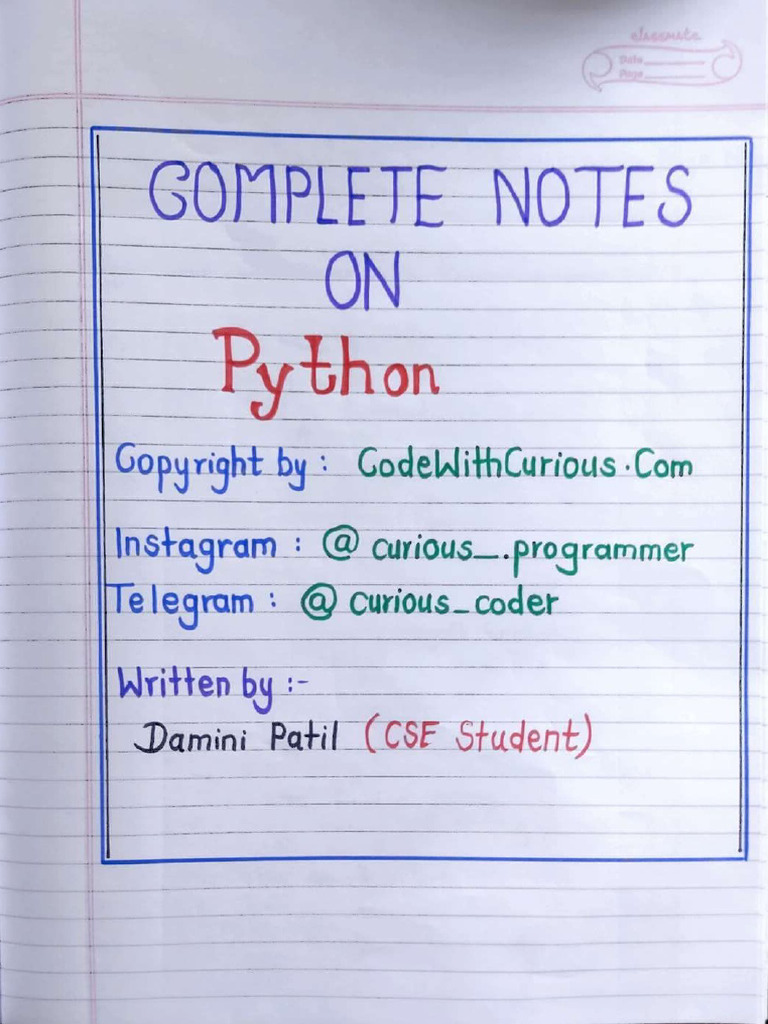 classmate
Date
Page
COMPLETE NOTES
ON
Python
Copyright by : CodeWithCurious.Com
Instagram : @ curious_.programmer
Telegram : @ curious_coder
Written by :-
Damini Patil (CSE Student)